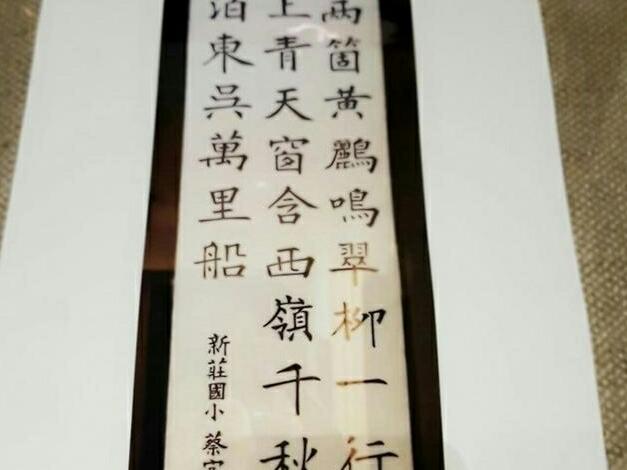 兩箇黃鸝鳴翠柳一行
上青天窗含西嶺千秋
泊東吳萬里船
新莊國小 蔡